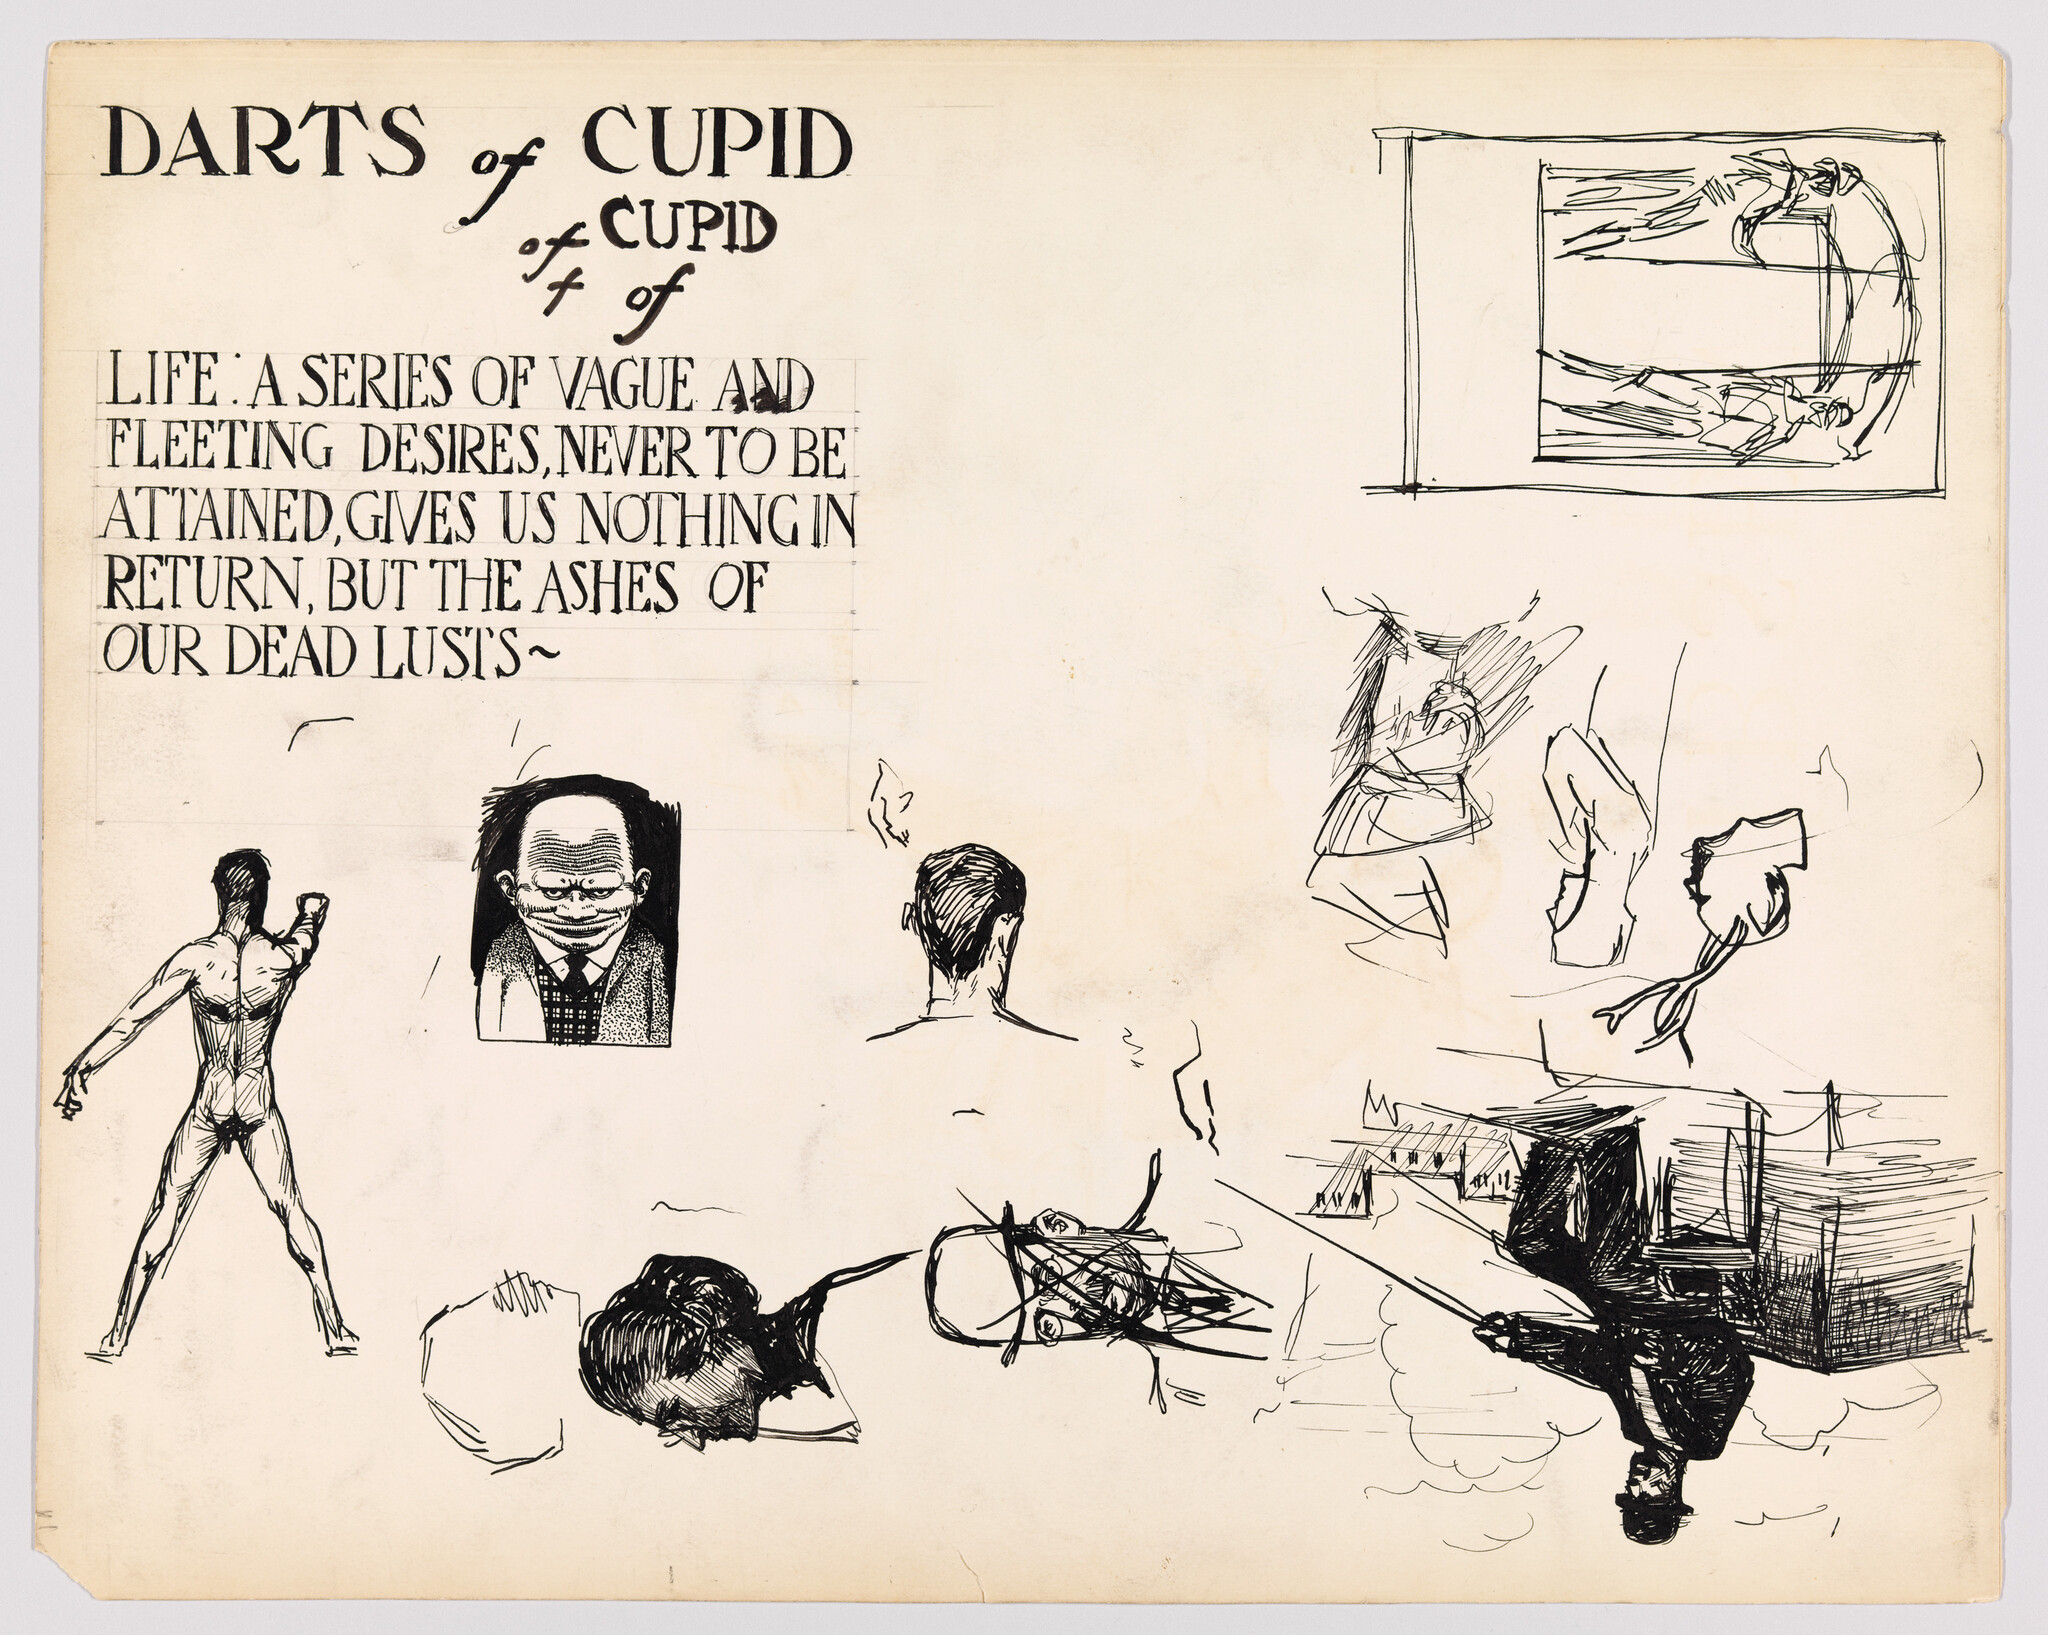 DARTS of CUPID
of CUPID
f of
LIFE: A SERIES OF VAGUE AND
FLEETING DESIRES, NEVER TO BE
ATTAINED, GIVES US NOTHING IN
RETURN, BUT THE ASHES OF
OUR DEAD LUSTS~